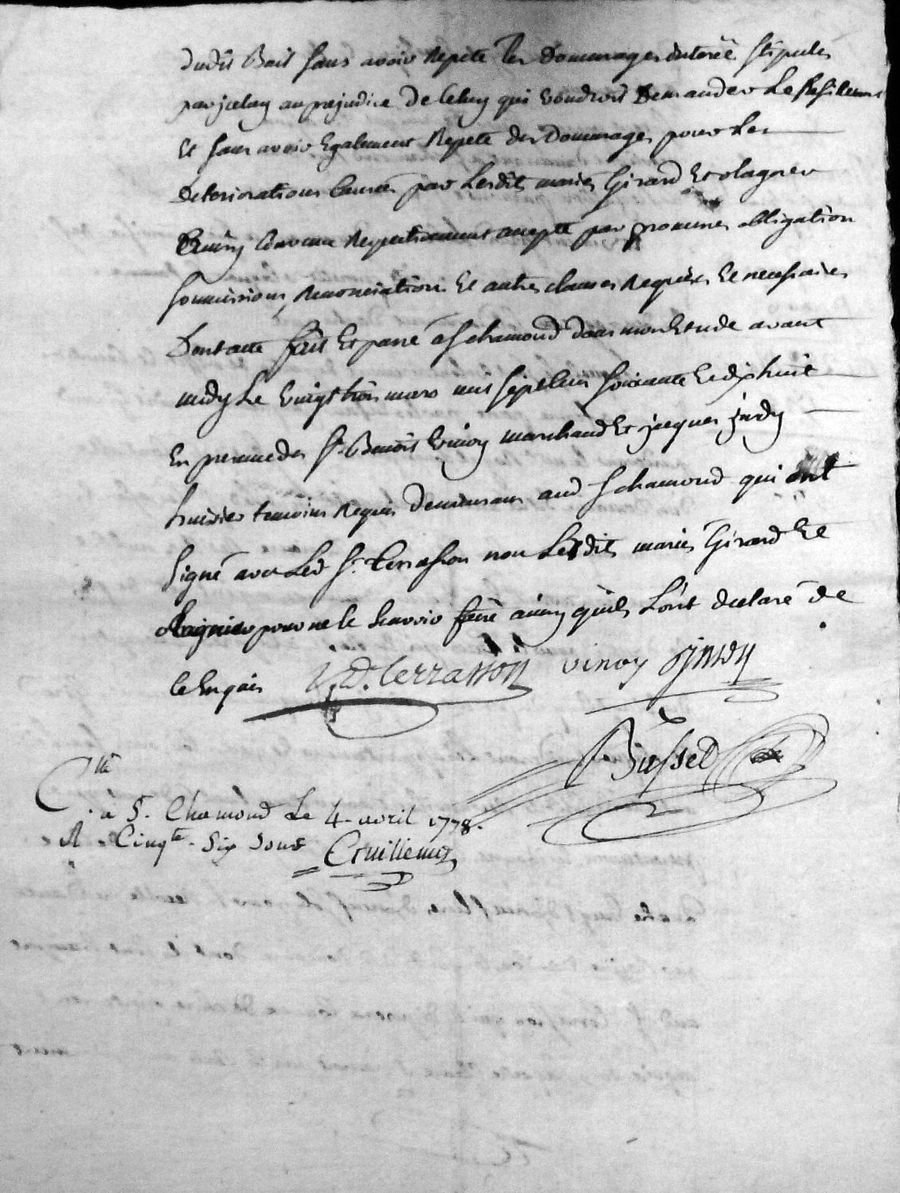 dudit Bail sans avoir Repeté les Dommages interêt stipulés
par jceluy au prejudice de Celuy qui voudroit Demander Le
Et sans avoir Egalement Repeté des Dommages pour Les
Deteriorations Causés par Lesdit mariés Girard Et
ainsy Convenu Respectivement accepté par promesses obligation
soumissions Renonciations Et autres clauses Requises Et necessaires
Dont acte fait Et passé a St chamond dans mon Etude avant
midy Le vingt trois mars mil sept Cent soixante Et dix huit
En presence des Sr Benoit vinoy marchand Et jacques
huissier temoins Requis Demeurans aud St chamond qui ont
signé avec Led Sr terrasson non Lesdit mariés Girard Et
pour ne le scavoir faire ainsy quils L'ont declaré de
Ce Enquis terrasson vinoy
Bussel
Clle
à St Chamond Le 4 avril 1778.
R cinqte six sous